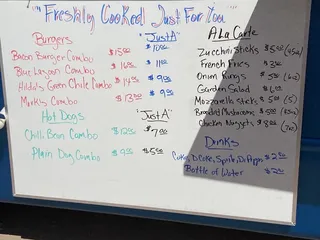 "Freshley Cooked Just For You"
Burgers "Just A"
Bacon Burger Combo $15.00 $10.00
Blue Lagoon Combo $16.00 $11.00
Green Chile Combo $14.00 $9.00
Combo $13.00 $9.00
Hot Dogs "Just A"
Chili Bean Combo $12.00 $7.00
Plain Dog Combo $9.00 $5.00
A La Carte
Zucchini Sticks $5.00
French Fries $3.00
Onion Rings $5.00
Garden Salad $6.00
Mozzarella Sticks $5.00 (5)
Breaded Mushrooms $5.00
Chicken Nuggets $8.00
Drinks
Coke, D.Coke, Sprite, Dr.Pepper $2.50
Bottle of Water $2.00